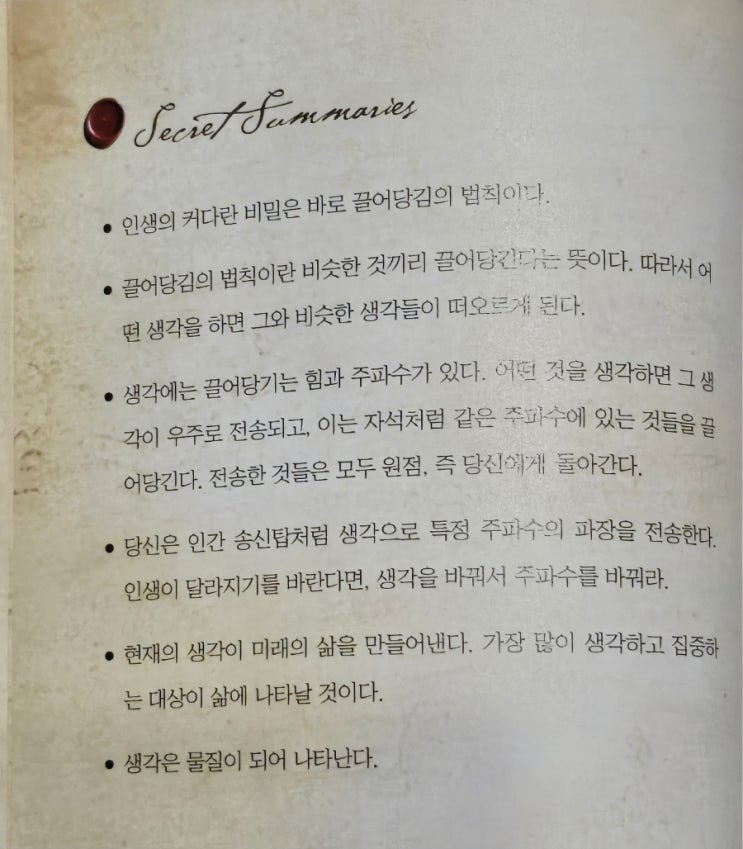 Secret Summaries
• 인생의 커다란 비밀은 바로 끌어당김의 법칙이다.
• 끌어당김의 법칙이란 비슷한 것끼리 끌어당긴다는 뜻이다. 따라서 어
떤 생각을 하면 그와 비슷한 생각들이 떠오르게 된다.
• 생각에는 끌어당기는 힘과 주파수가 있다. 어떤 것을 생각하면 그 생
각이 우주로 전송되고, 이는 자석처럼 같은 주파수에 있는 것들을 끌
어당긴다. 전송한 것들은 모두 원점, 즉 당신에게 돌아간다.
• 당신은 인간 송신탑처럼 생각으로 특정 주파수의 파장을 전송한다.
인생이 달라지기를 바란다면, 생각을 바꿔서 주파수를 바꿔라.
• 현재의 생각이 미래의 삶을 만들어낸다. 가장 많이 생각하고 집중하
는 대상이 삶에 나타날 것이다.
• 생각은 물질이 되어 나타난다.